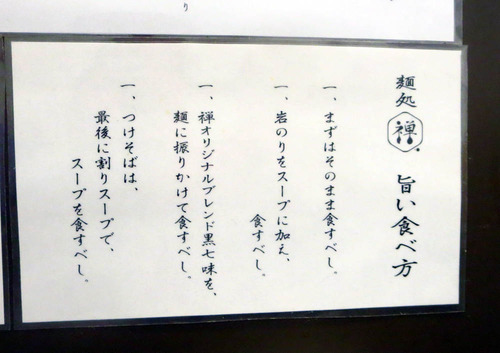 り
麺処 禅 旨い食べ方
一、まずはそのまま食すべし。
一、岩のりをスープに加え、
食すべし。
一、禅オリジナルブレンド黒七味を、
麺に振りかけて食すべし。
一、つけそばは、
最後に割りスープで、
スープを食すべし。